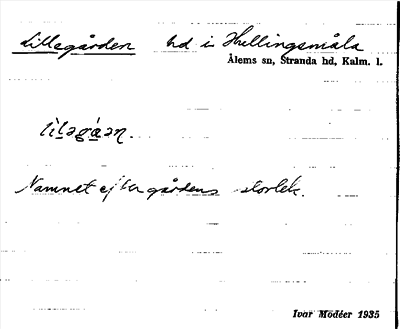 Lillegården hd i Hellingsmåla
Ålems sn, Stranda hd, Kalm. l.
lìləgá̀ən.
Namnet efter gårdens storlek.
Ivar Modéer 1935